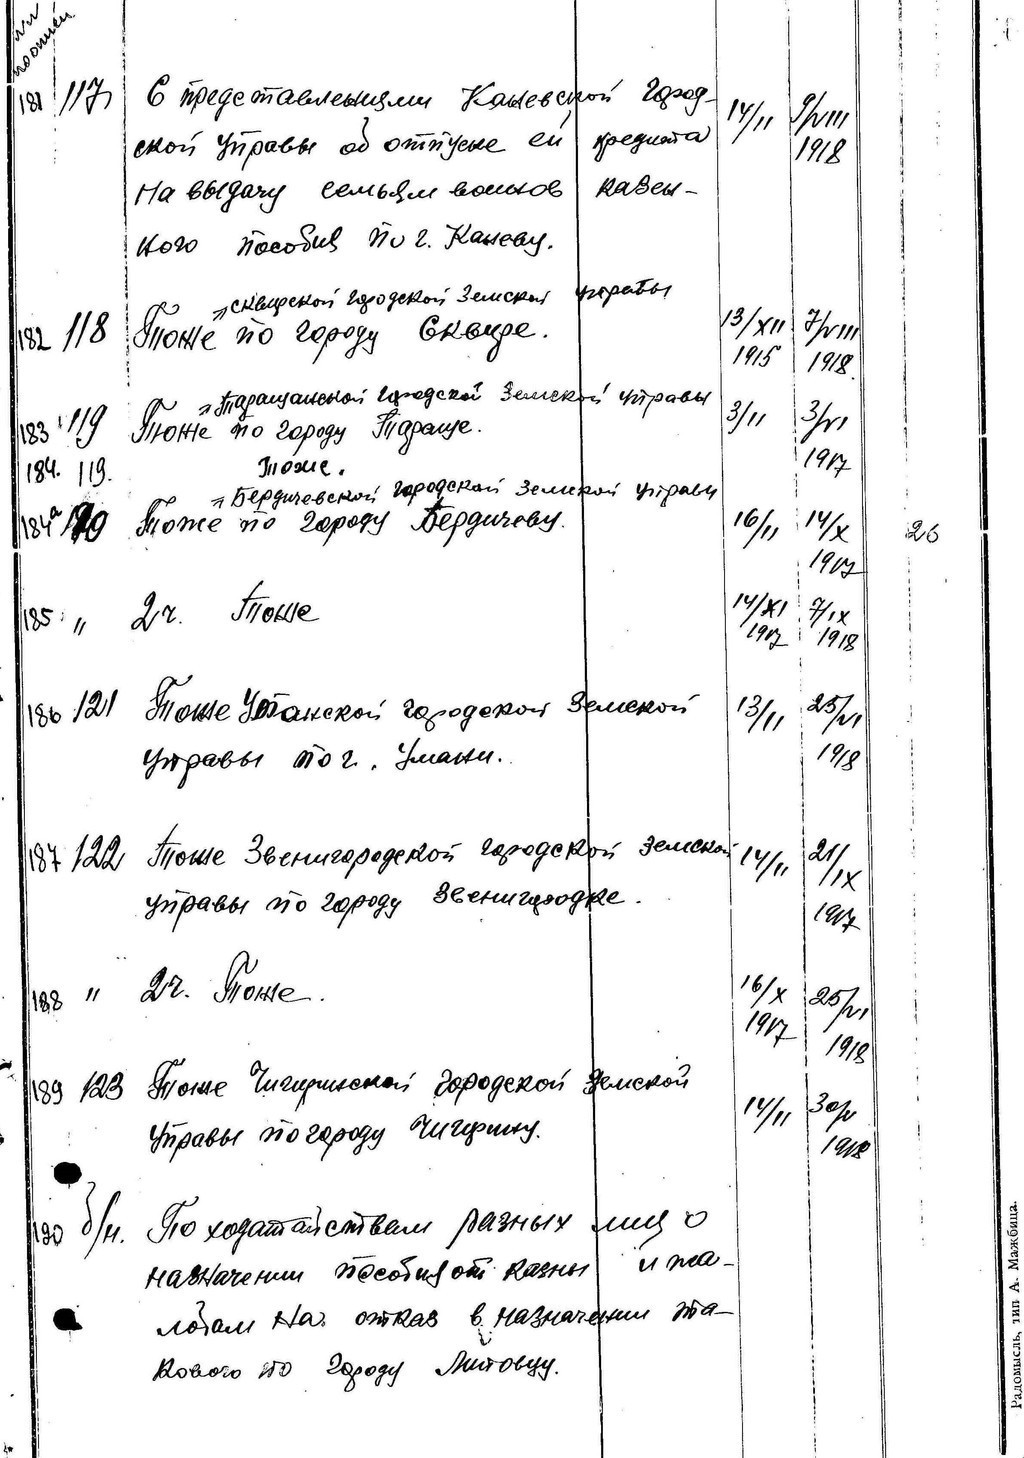 181 117 С представлениями Каневской город-
ской управы об отпуске ей кредита
на выдачу семьям воинов казен-
ного пособия по г. Каневу.
14/II 9/VIII
1918
„Сквирской городской Земской управы
182 118 Тоже по городу Сквире. 13/XII 7/VIII
1915 1918.
„Таращанской городской Земской управы
183 119 Тоже по городу Тараще. 3/II 3/VI
1917
184. 119. Тоже.
„Бердичевской городской Земской управы
184а 120 Тоже по городу Бердичеву. 16/II 14/X 26
1917
185 „ 2ч. Тоже 14/XI 7/IX
1917 1918
186 121 Тоже Уманской городской Земской 13/II 25/VI
управы по г. Умани. 1918
187 122 Тоже Звенигородской городской Земской 14/II 21/IX
управы по городу Звенигородке. 1917
188 „ 2ч. Тоже. 16/X 25/VI
1917 1918
189 123 Тоже Чигиринской городской Земской
Управы по городу Чигирину. 14/II 30/V
1918
190 б/н. По ходатайствам разных лиц о
назначении пособия от казны и жа-
лобам на отказ в назначении та-
кового по городу Липовцу.
Радомысль, тип А. Мажбица.